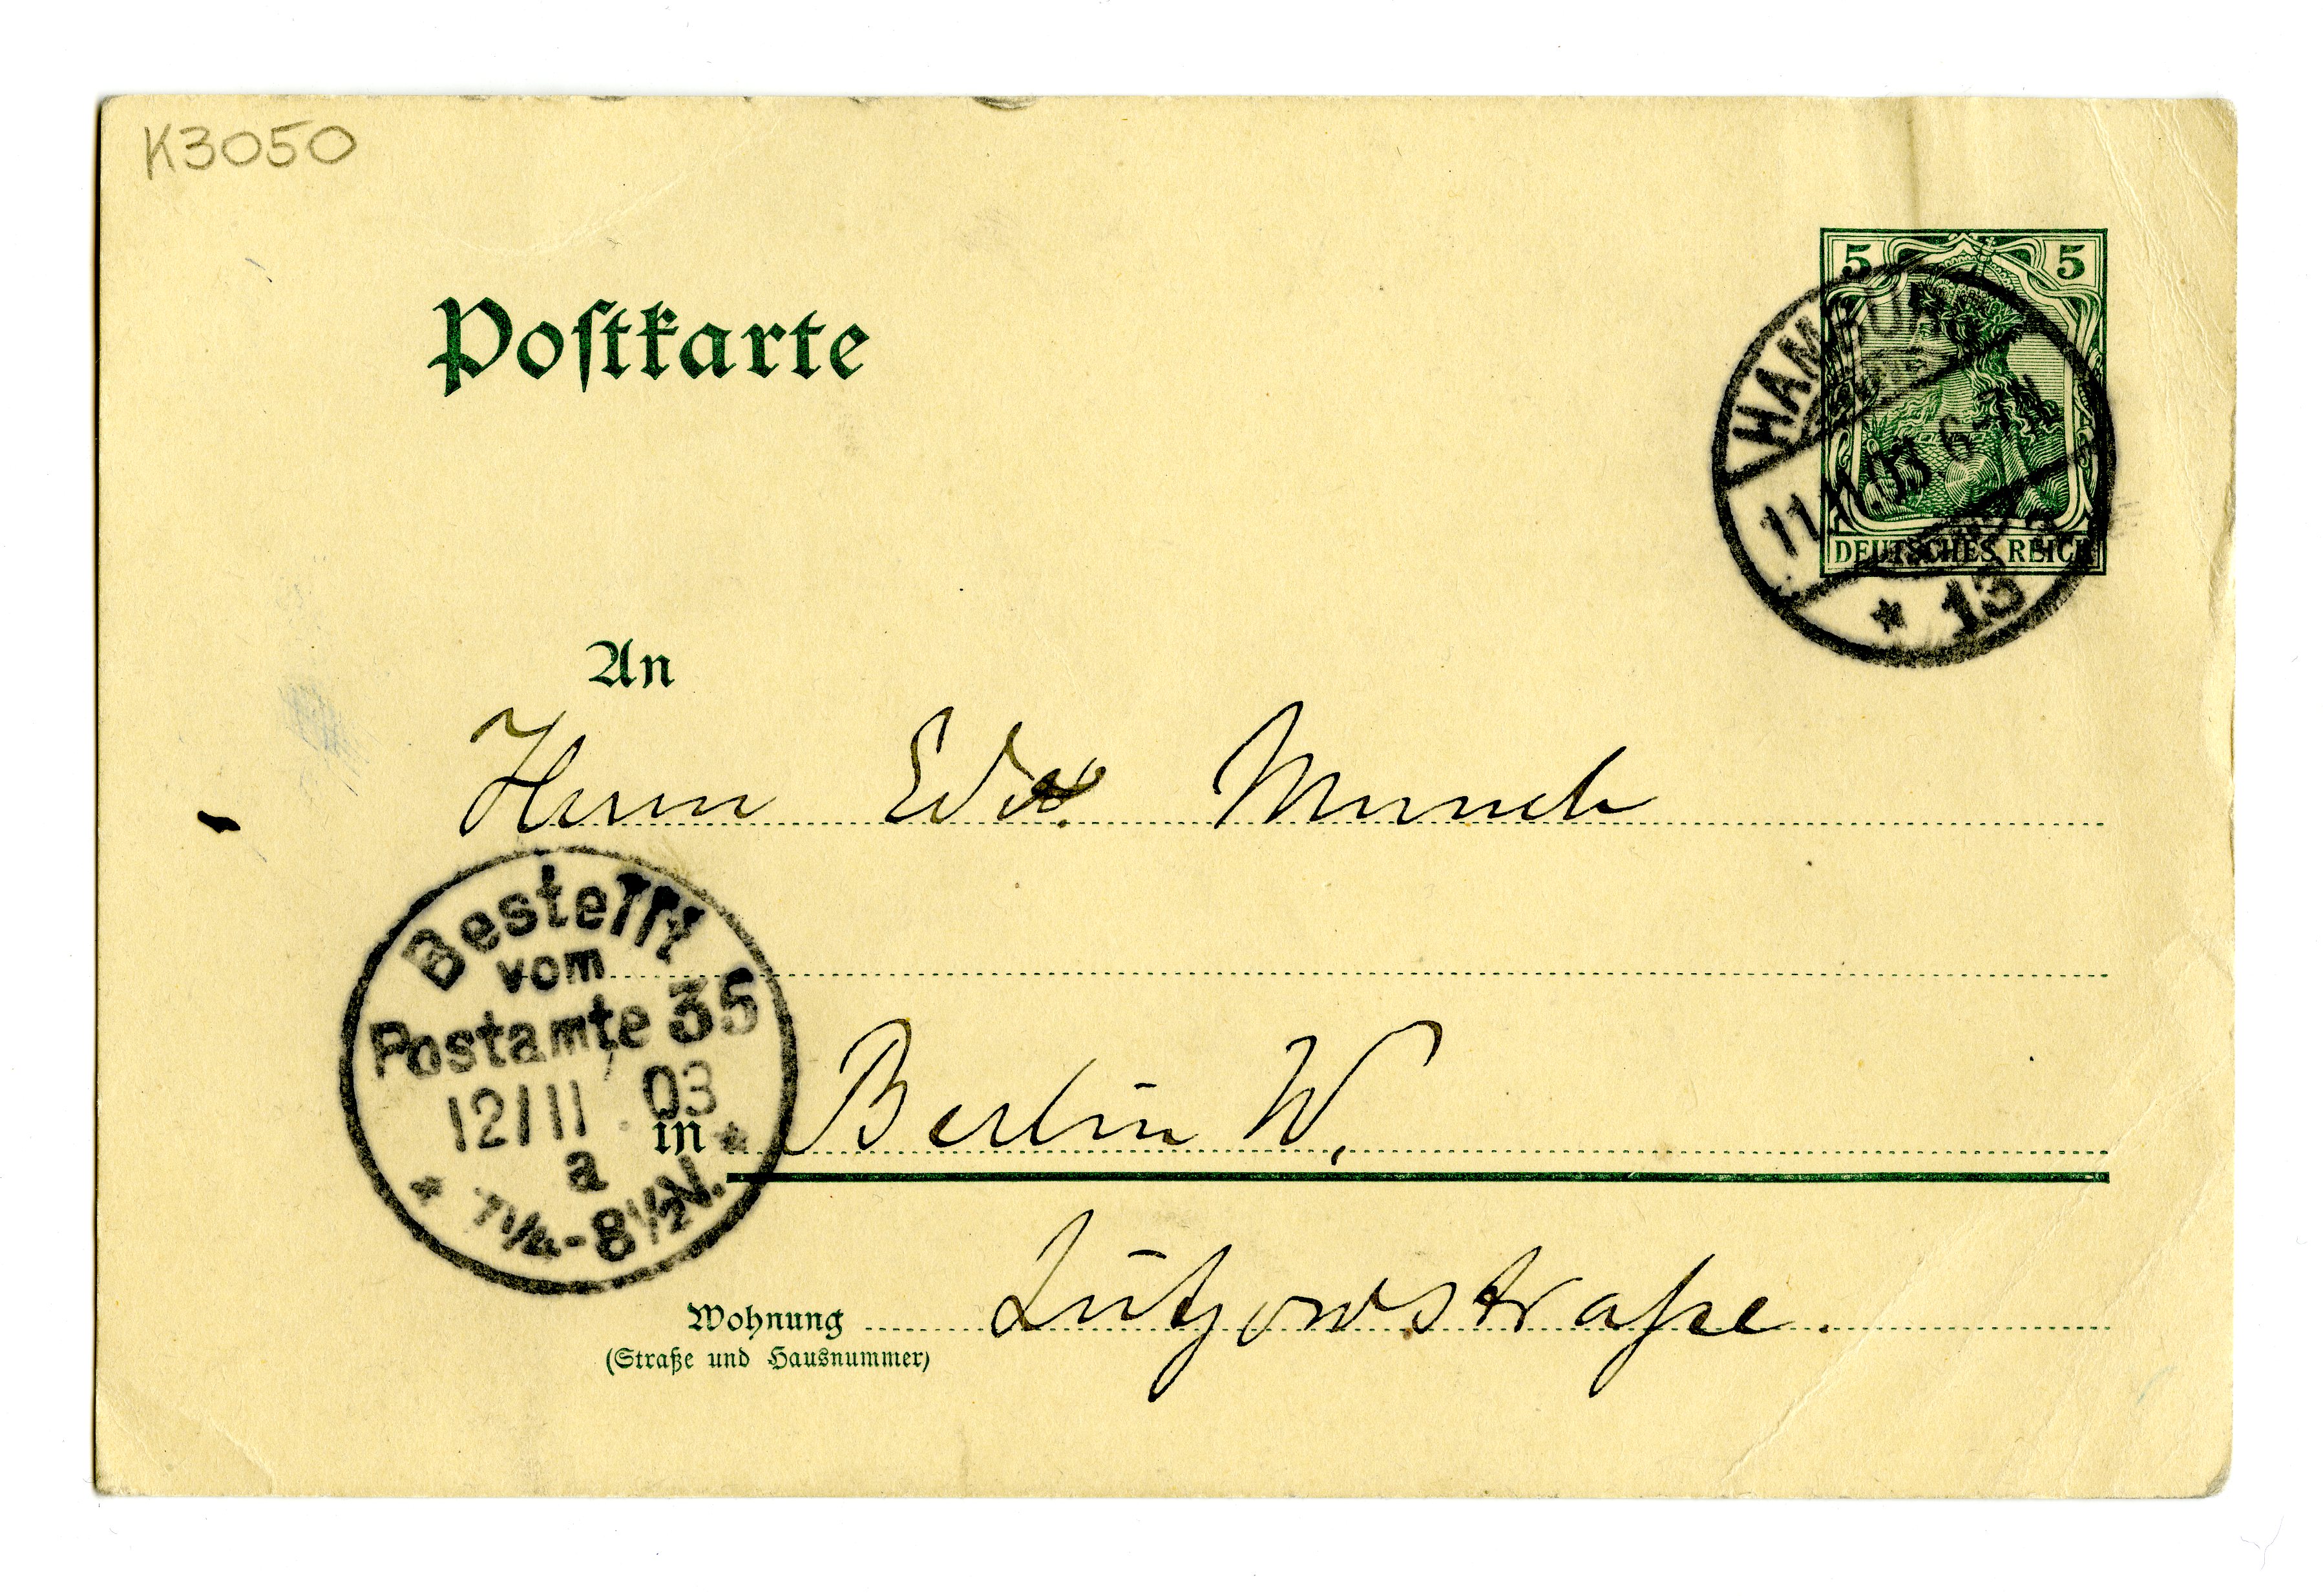 K3050
Postkarte
5 5
HAMBURG
11.11.03 6-7N
* 13
DEUTSCHES REICH
An
Herrn Edv. Munch
Bestellt
vom
Postamte 35
12/11 03
a
* 7¼-8½N. *
in Berlin W.
Wohnung Lützowstraße.
(Straße und Hausnummer)